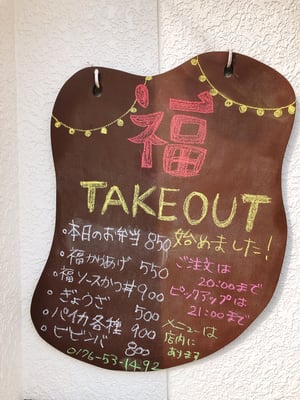 福
TAKEOUT
・本日のお弁当 850 始めました!
・福からあげ 550
・福ソースかつ丼 900
・ぎょうざ 500
・パイカ各種 900
・ビビンバ 800
0176-53-1492
ご注文は
20:00まで
ピックアップは
21:00まで
メニューは
店内に
あります